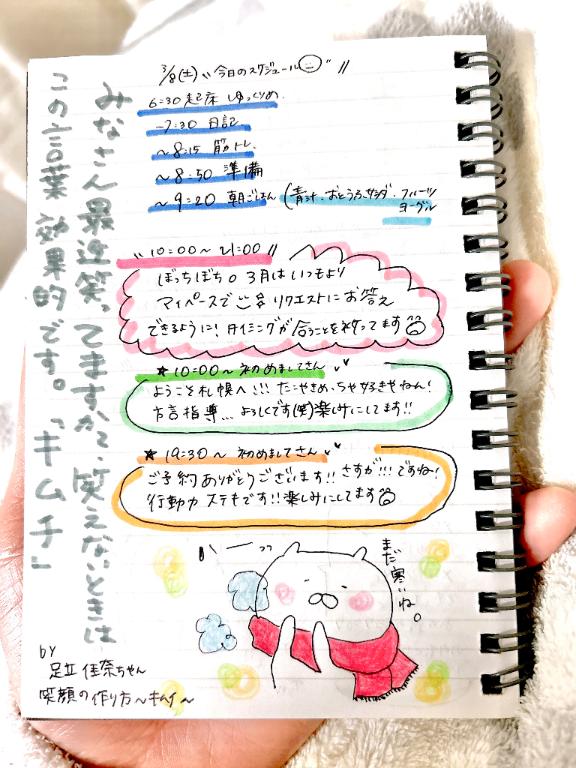 3/8(土) "今日のスケジュール"
6:30 起床 ゆっくりめ
~7:30 日記
~8:15 筋トレ
~8:50 準備
~9:20 朝ごはん (青汁・おとうふサラダ・フルーツ
ヨーグル
"10:00~21:00"
ぼっちぼち。3月はいつもより
マイペースでご予 リクエストにお答え
できるように! タイミングが合うことを祈ってます
★10:00~ 初めましてさん
ようこそ札幌へ!!! たこやきめっちゃ好きやねん!
方言指導... よろしくです(笑)楽しみにしてます!!
★19:30~ 初めましてさん
ご予約ありがとうございます!! さすが!!! ですね!
行動力 ステキです!! 楽しみにしてます
まだ寒いね。
みなさん 最近笑ってますか? 笑えないときは
この言葉 効果的です。「キムチ」
by
足立 佳奈ちゃん
笑顔の作り方~キムチ~